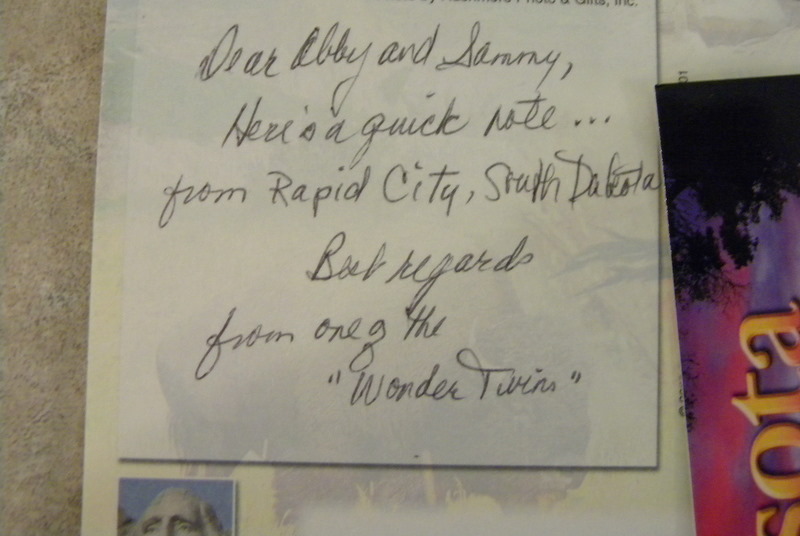 Photo & Gifts, Inc.
Dear Abby and Sammy,
Here's a quick note ...
from Rapid City, South Dakota
Best regards
from one of the
"Wonder Twins"
sota